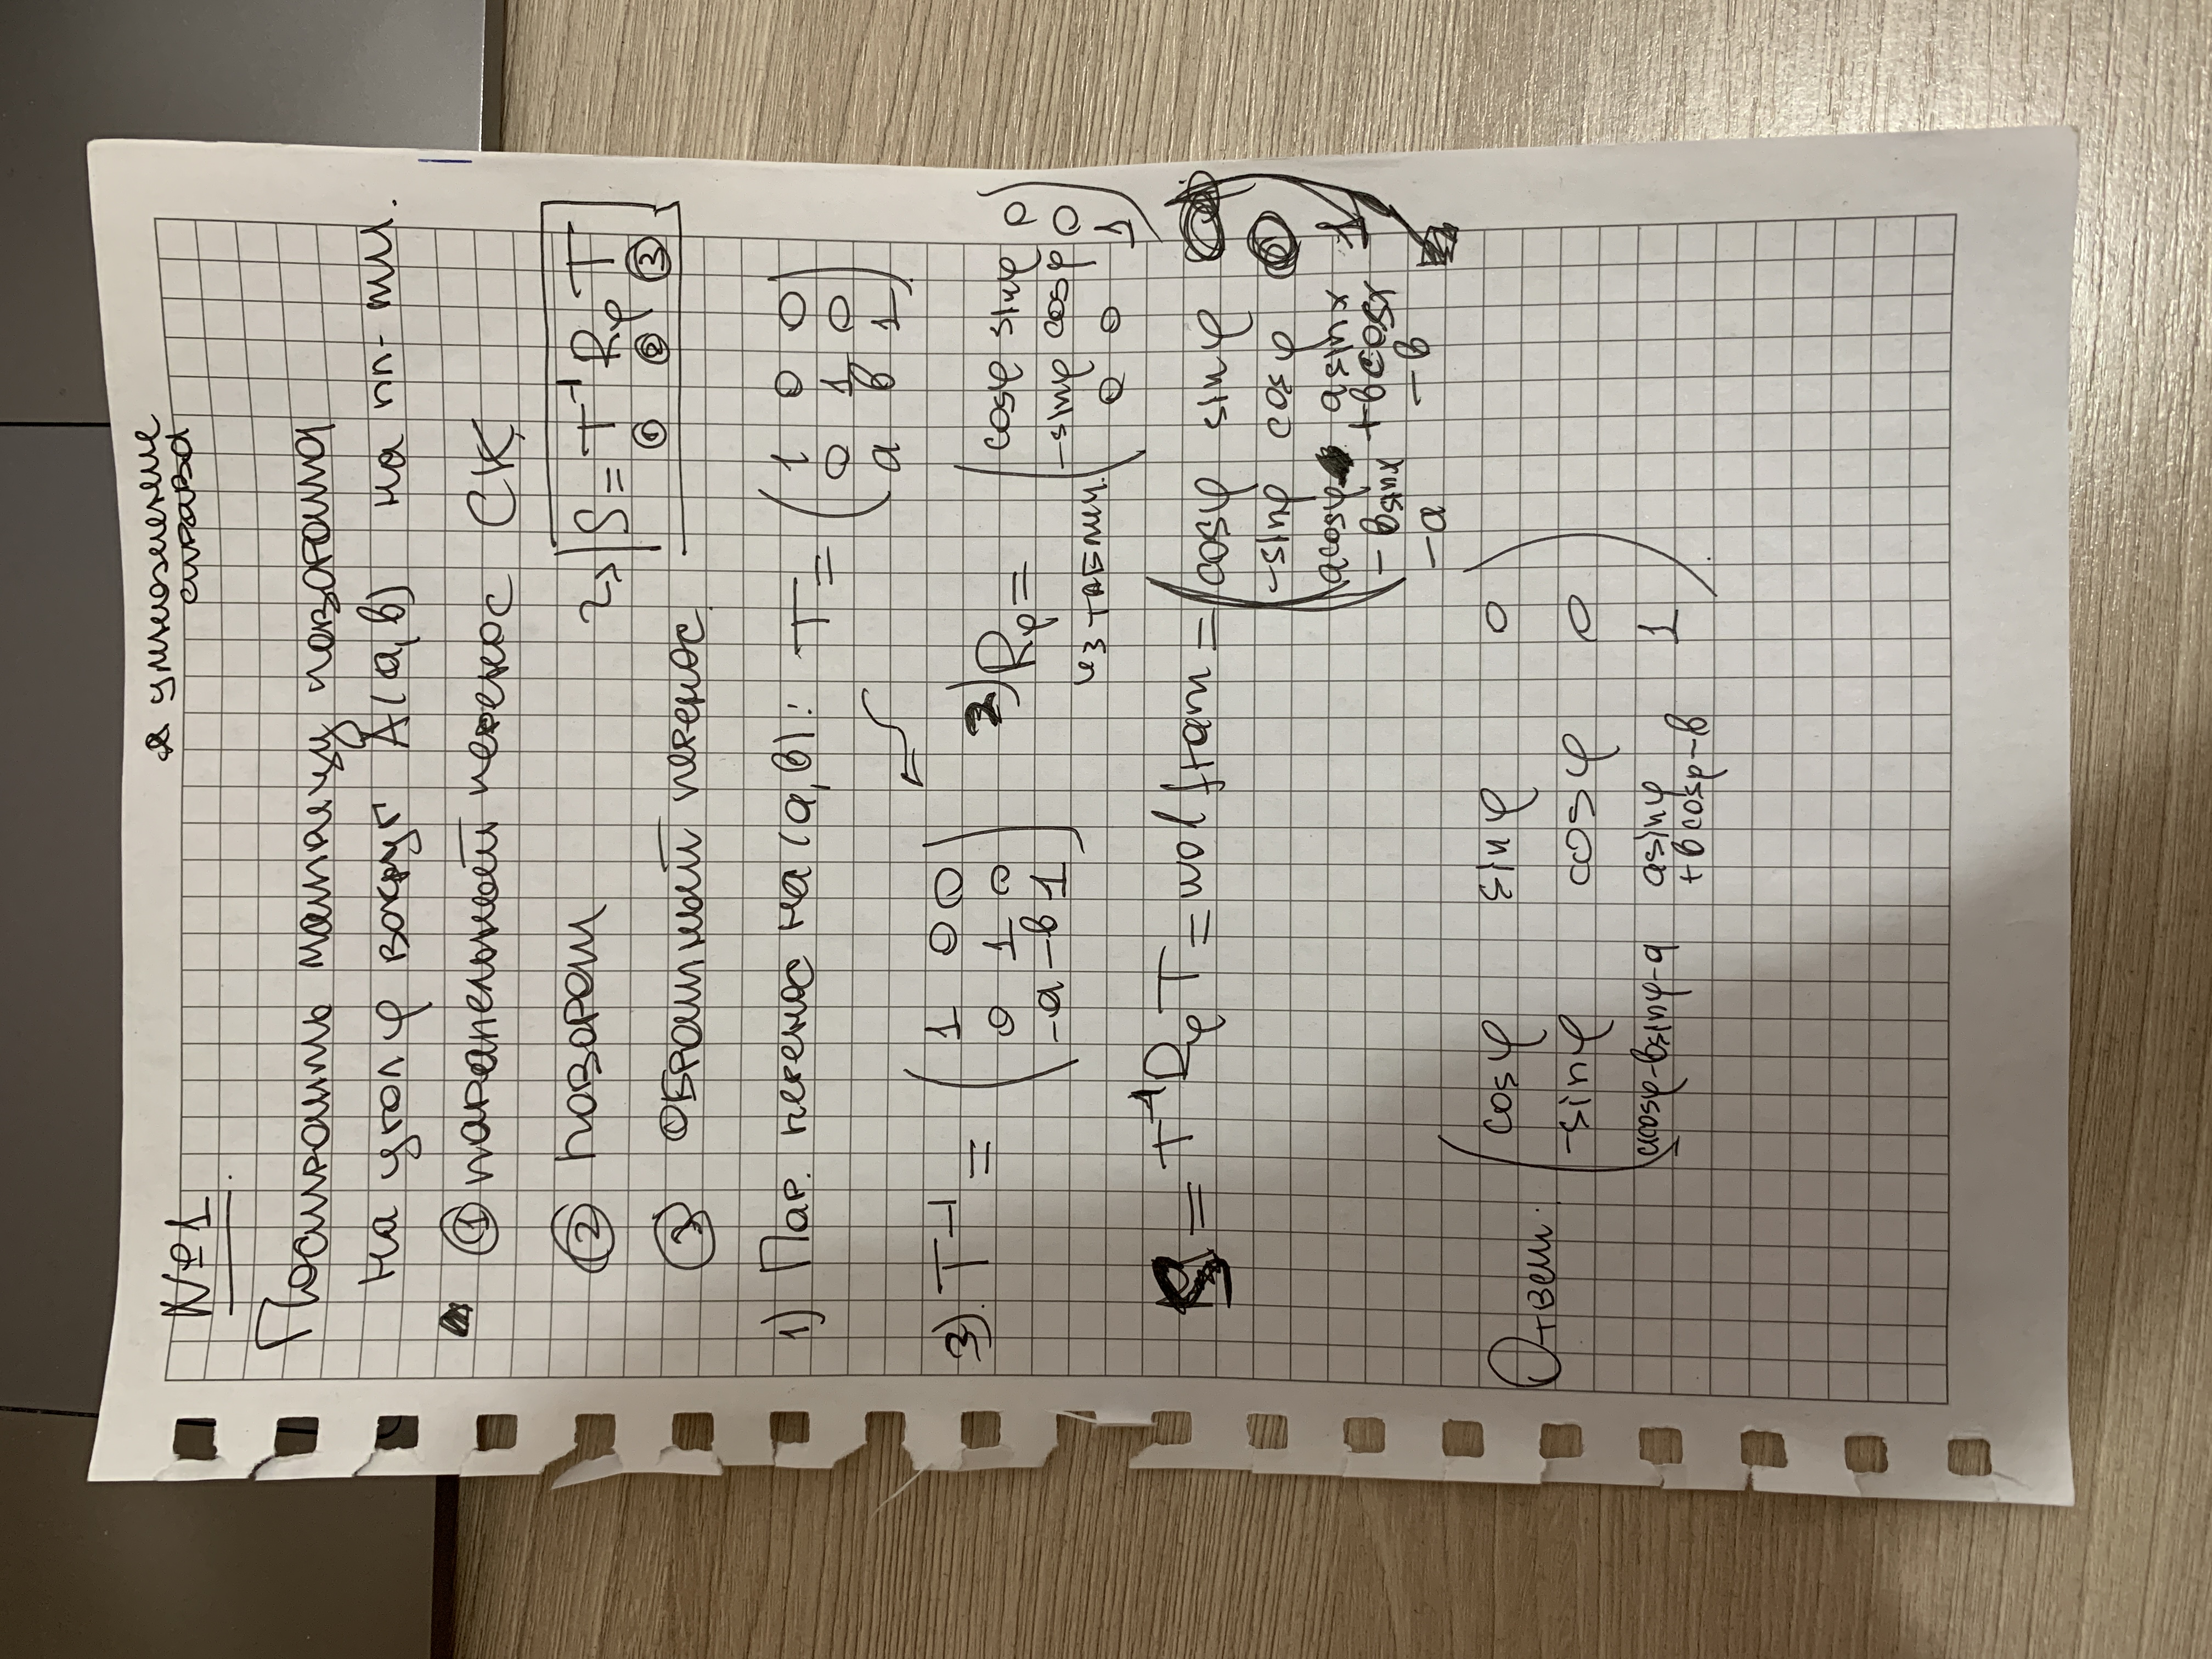 умножение
справа
№1.
Построить матрицу поворота
на угол φ вокруг A(a,b) на пл-ти.
① параллельный перенос СК
② поворот
=> S = T⁻¹ Rφ T
① ② ③
③ обратный перенос.
1) Пар. перенос на (a,b): T = (1 0 0
0 1 0
a b 1)
3). T⁻¹ = (1 0 0
0 1 0
-a -b 1)
2) Rφ = (cosφ sinφ 0
-sinφ cosφ 0
0 0 1)
из таблич.
S = T⁻¹ Rφ T = wolfram = (cosφ sinφ 0
-sinφ cosφ 0
acosφ asinx 1
-bsinx +bcosx
-a -b)
Ответ: (cosφ sinφ 0
-sinφ cosφ 0
acosφ-bsinφ-a asinφ 1
+bcosφ-b).